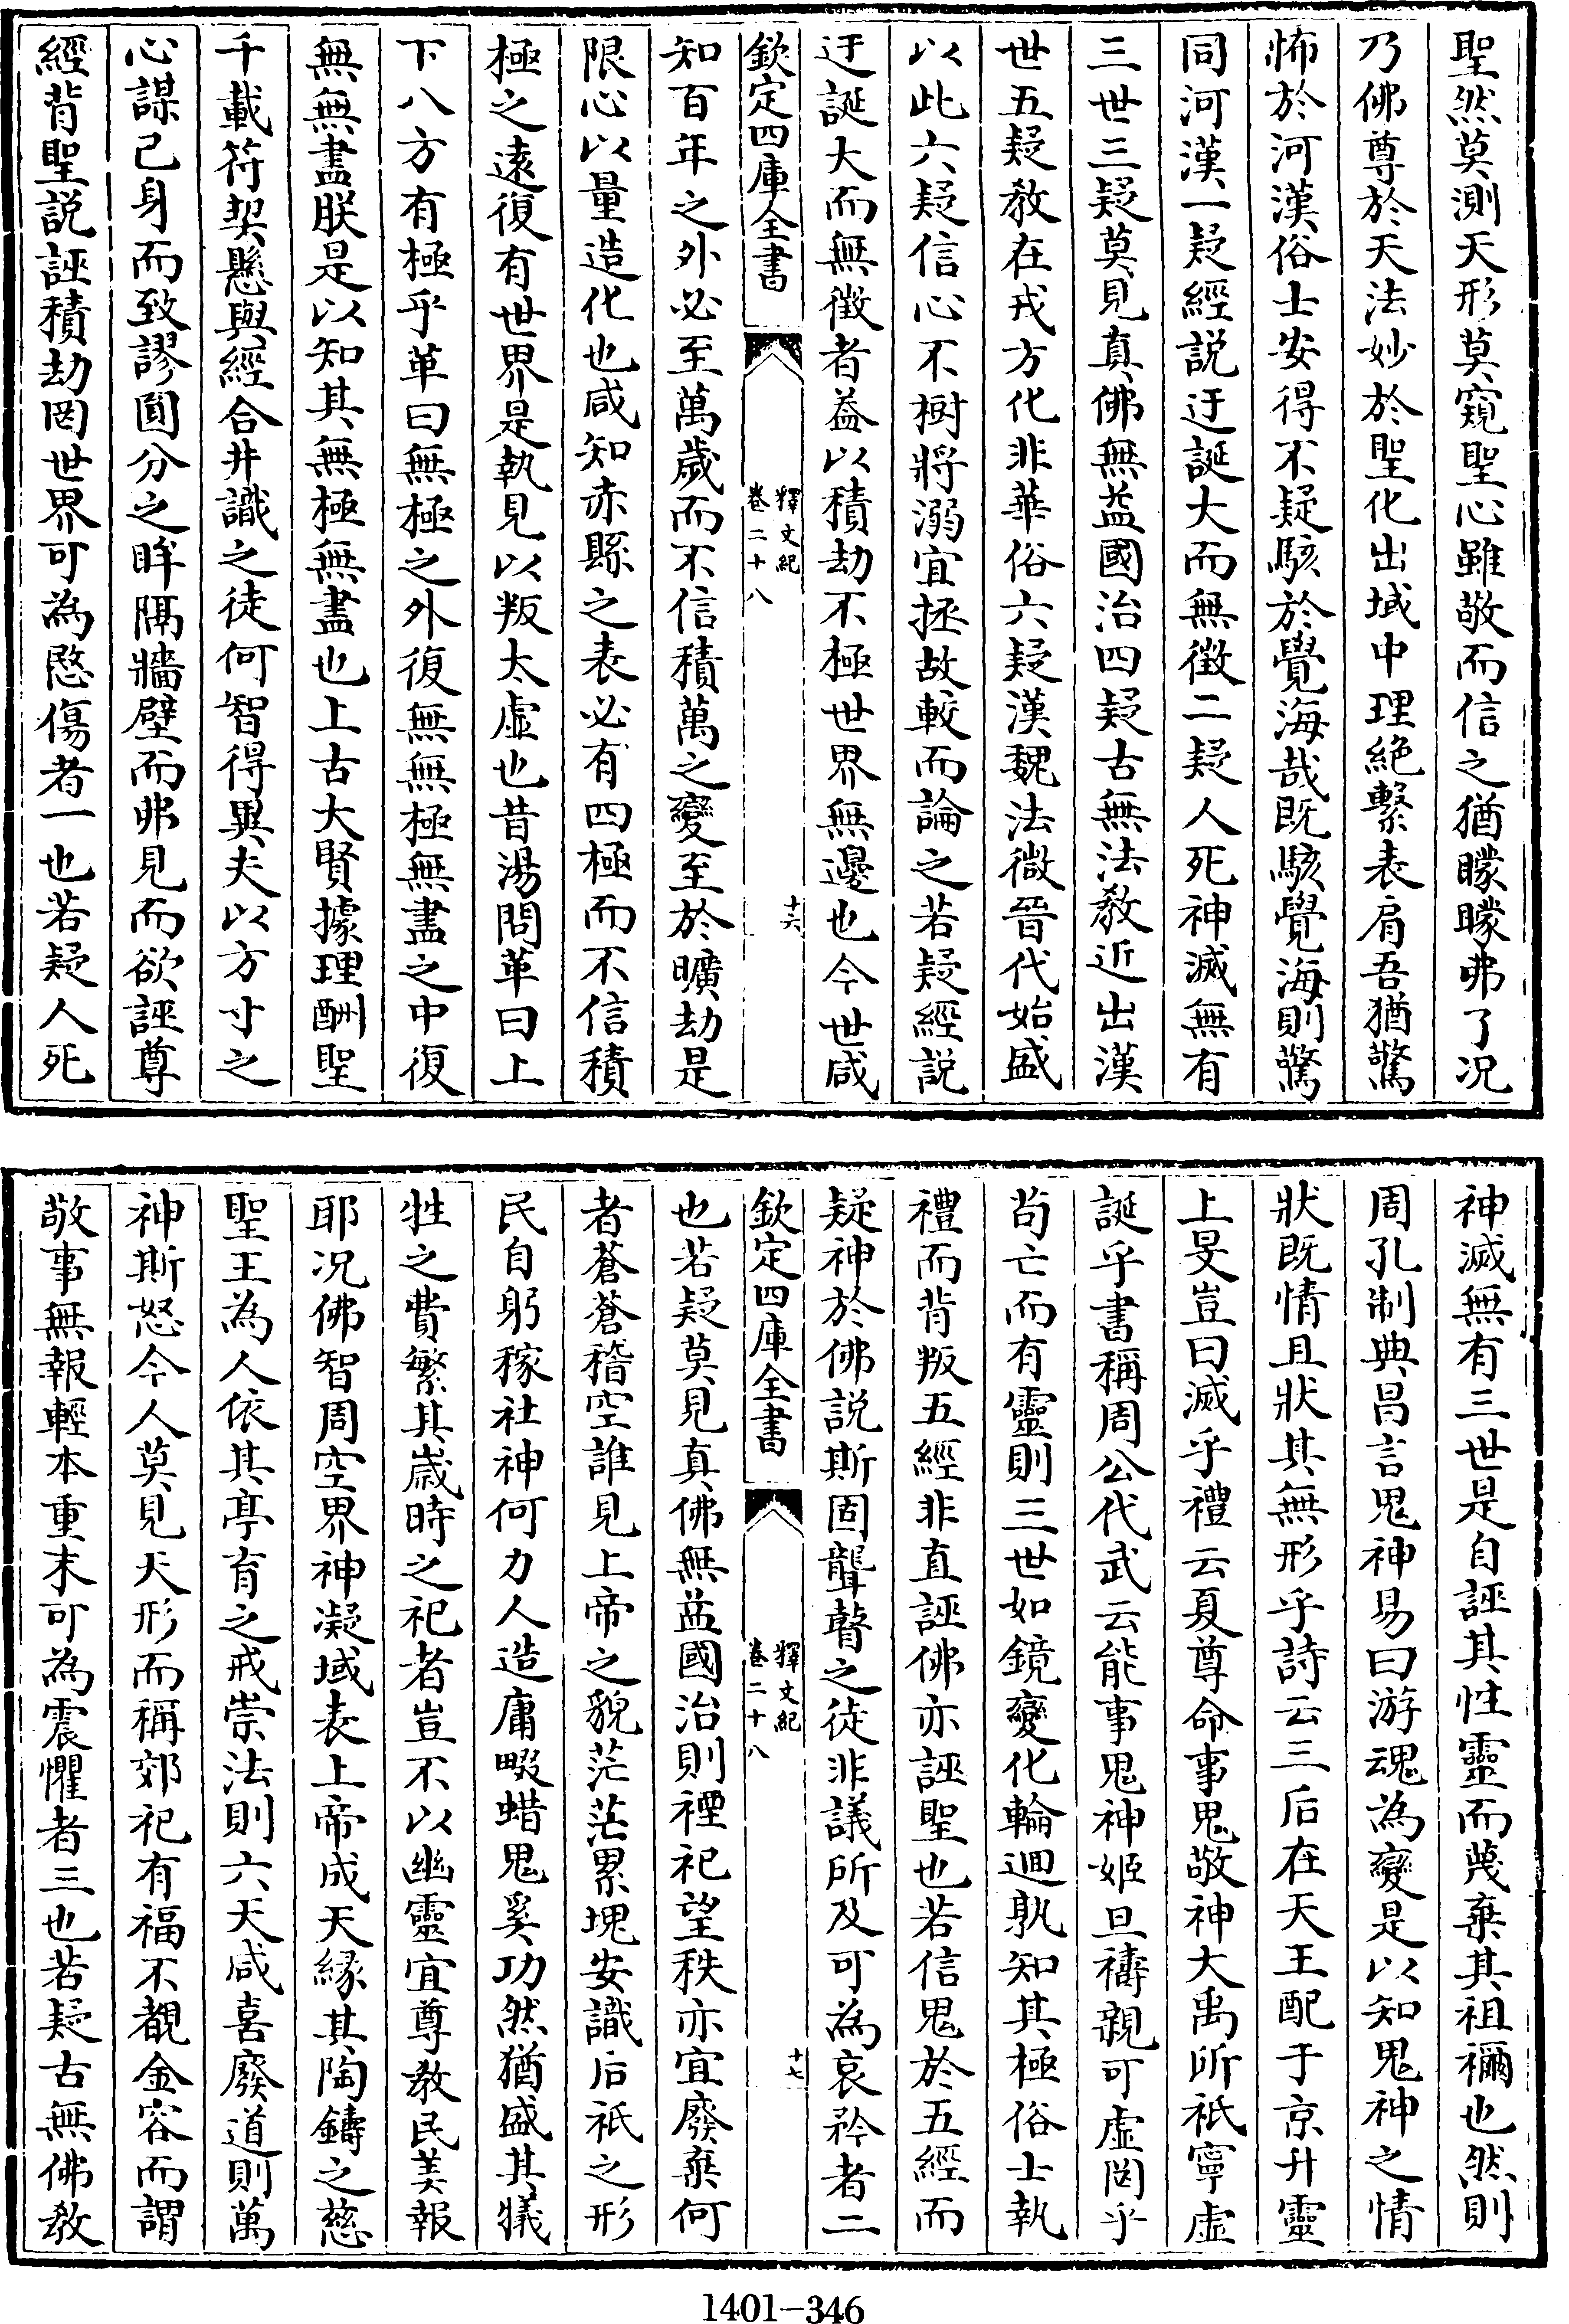 聖然莫測天形莫窺聖心雖敬而信之猶矇矇弗了况
乃佛尊於天法妙於聖化出域中理絶繫表肩吾猶驚
怖於河漢俗士安得不疑駭於覺海哉既駭覺海則驚
同河漢一疑經説迂誕大而無徴二疑人死神滅無有
三世三疑莫見真佛無益國治四疑古無法教近出漢
世五疑教在戎方化非華俗六疑漢魏法微晉代始盛
以此六疑信心不樹將溺宜拯故較而論之若疑經説
迂誕大而無徴者益以積劫不極世界無邊也今世咸
欽定四庫全書
釋文紀
卷二十八
十六
知百年之外必至萬歲而不信積萬之變至於曠劫是
限心以量造化也咸知赤縣之表必有四極而不信積
極之遠復有世界是執見以叛太虚也昔湯問革曰上
下八方有極乎革曰無極之外復無無極無盡之中復
無無盡朕是以知其無極無盡也上古大賢據理酬聖
千載符契懸與經合井識之徒何智得異夫以方寸之
心謀己身而致謬圓分之眸隔牆壁而弗見而欲誣尊
經背聖説誣積劫罔世界可為愍傷者一也若疑人死
神滅無有三世是自誣其性靈而蔑棄其祖禰也然則
周孔制典昌言鬼神易曰游魂為變是以知鬼神之情
狀既情且狀其無形乎詩云三后在天王配于京升靈
上旻豈曰滅乎禮云夏尊命事鬼敬神大禹所祇寧虚
誕乎書稱周公代武云能事鬼神姬旦禱親可虚罔乎
苟亡而有靈則三世如鏡變化輪迴孰知其極俗士執
禮而背叛五經非直誣佛亦誣聖也若信鬼於五經而
疑神於佛説斯固聾瞽之徒非議所及可為哀矜者二
欽定四庫全書
釋文紀
卷二十八
十七
也若疑莫見真佛無益國治則禋祀望秩亦宜廢棄何
者蒼蒼積空誰見上帝之貌茫茫累塊安識后祇之形
民自躬稼社神何力人造庸畷蜡鬼奚功然猶盛其犧
牲之費繁其歲時之祀者豈不以幽靈宜尊教民美報
耶况佛智周空界神凝域表上帝成天縁其陶鑄之慈
聖王為人依其亭育之戒崇法則六天咸喜廢道則萬
神斯怒今人莫見天形而稱郊祀有福不覩金容而謂
敬事無報輕本重末可為震懼者三也若疑古無佛教
1401-346